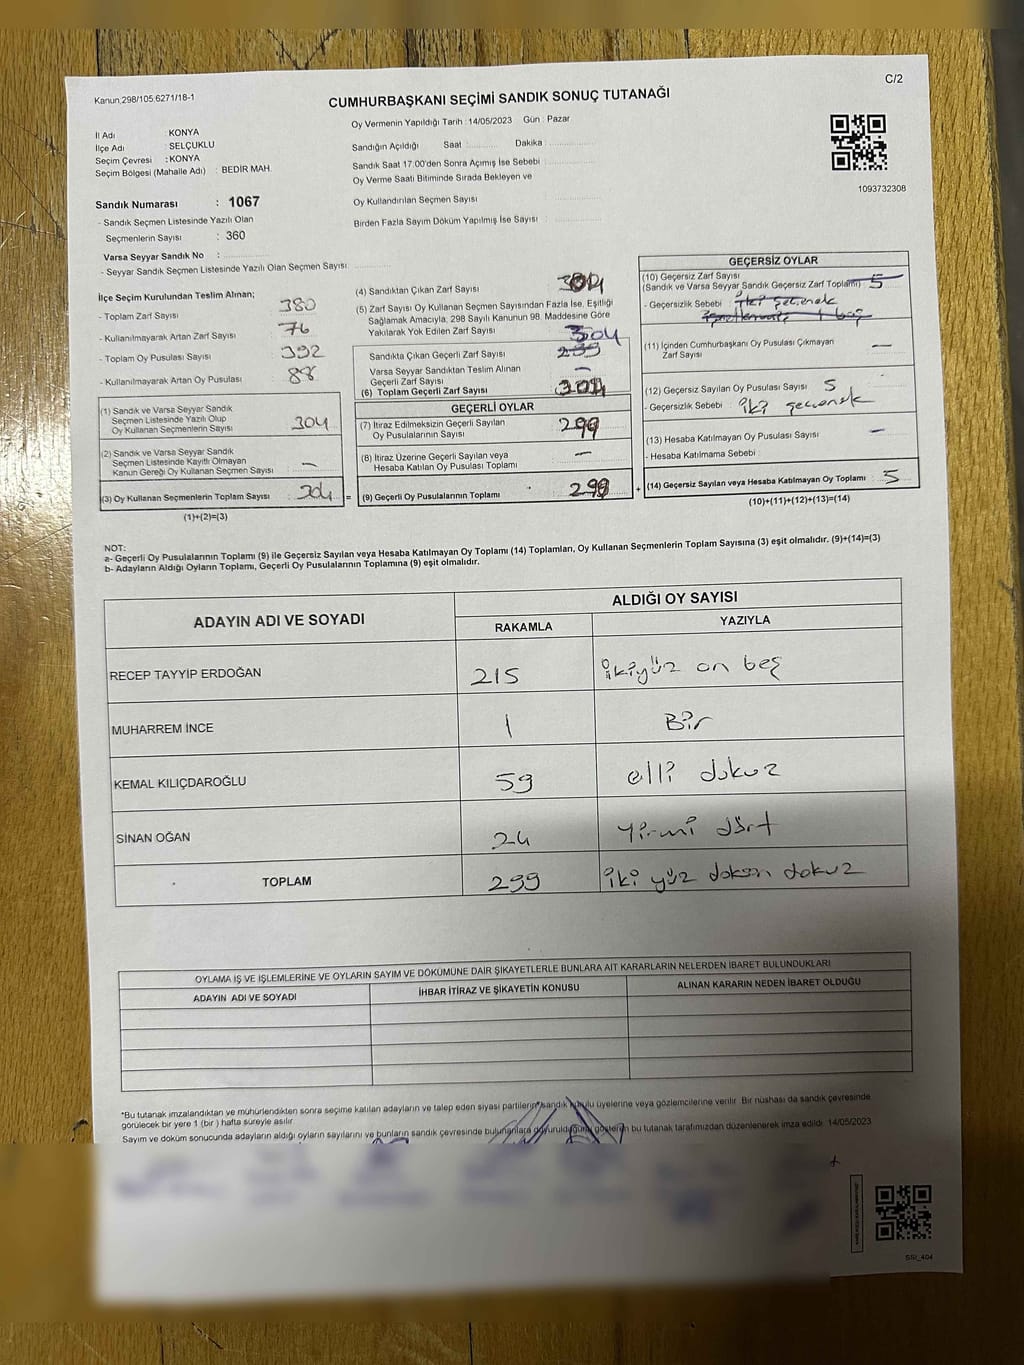 C/2
Kanun,298/105,6271/18-1
CUMHURBAŞKANI SEÇİMİ SANDIK SONUÇ TUTANAĞI
İl Adı : KONYA
İlçe Adı : SELÇUKLU
Seçim Çevresi : KONYA
Seçim Bölgesi (Mahalle Adı) : BEDİR MAH.
Sandık Numarası : 1067
- Sandık Seçmen Listesinde Yazılı Olan
Seçmenlerin Sayısı : 360
Varsa Seyyar Sandık No :
- Seyyar Sandık Seçmen Listesinde Yazılı Olan Seçmen Sayısı:
Oy Vermenin Yapıldığı Tarih : 14/05/2023 Gün : Pazar
Sandığın Açıldığı Saat Dakika
Sandık Saat 17:00'den Sonra Açımış İse Sebebi
Oy Verme Saati Bitiminde Sırada Bekleyen ve
Oy Kullandırılan Seçmen Sayısı
Birden Fazla Sayım Döküm Yapılmış İse Sayısı
1093732308
İlçe Seçim Kurulundan Teslim Alınan;
- Toplam Zarf Sayısı 380
- Kullanılmayarak Artan Zarf Sayısı 76
- Toplam Oy Pusulası Sayısı 392
- Kullanılmayarak Artan Oy Pusulası 88
(1) Sandık ve Varsa Seyyar Sandık
Seçmen Listesinde Yazılı Olup
Oy Kullanan Seçmenlerin Sayısı 304
(2) Sandık ve Varsa Seyyar Sandık
Seçmen Listesinde Kayıtlı Olmayan
Kanun Gereği Oy Kullanan Seçmen Sayısı —
(3) Oy Kullanan Seçmenlerin Toplam Sayısı : 304 =
(1)+(2)=(3)
(4) Sandıktan Çıkan Zarf Sayısı 304
(5) Zarf Sayısı Oy Kullanan Seçmen Sayısından Fazla İse, Eşitliği
Sağlamak Amacıyla, 298 Sayılı Kanunun 98. Maddesine Göre
Yakılarak Yok Edilen Zarf Sayısı
304
Sandıkta Çıkan Geçerli Zarf Sayısı 299
Varsa Seyyar Sandıktan Teslim Alınan
Geçerli Zarf Sayısı —
(6) Toplam Geçerli Zarf Sayısı 304
GEÇERLİ OYLAR
(7) İtiraz Edilmeksizin Geçerli Sayılan
Oy Pusulalarının Sayısı 299
(8) İtiraz Üzerine Geçerli Sayılan veya
Hesaba Katılan Oy Pusulası Toplamı —
(9) Geçerli Oy Pusulalarının Toplamı 299 +
GEÇERSİZ OYLAR
(10) Geçersiz Zarf Sayısı
(Sandık ve Varsa Seyyar Sandık Geçersiz Zarf Toplamı) 5
- Geçersizlik Sebebi : iki seçenek
(11) İçinden Cumhurbaşkanı Oy Pusulası Çıkmayan
Zarf Sayısı —
(12) Geçersiz Sayılan Oy Pusulası Sayısı 5
- Geçersizlik Sebebi : iki seçenek
(13) Hesaba Katılmayan Oy Pusulası Sayısı —
- Hesaba Katılmama Sebebi :
(14) Geçersiz Sayılan veya Hesaba Katılmayan Oy Toplamı : 5
(10)+(11)+(12)+(13)=(14)
NOT:
a- Geçerli Oy Pusulalarının Toplamı (9) ile Geçersiz Sayılan veya Hesaba Katılmayan Oy Toplamı (14) Toplamları, Oy Kullanan Seçmenlerin Toplam Sayısına (3) eşit olmalıdır. (9)+(14)=(3)
b- Adayların Aldığı Oyların Toplamı, Geçerli Oy Pusulalarının Toplamına (9) eşit olmalıdır.
ADAYIN ADI VE SOYADI
ALDIĞI OY SAYISI
RAKAMLA YAZIYLA
RECEP TAYYİP ERDOĞAN 215 ikiyüz on beş
MUHARREM İNCE 1 Bir
KEMAL KILIÇDAROĞLU 59 elli dokuz
SİNAN OĞAN 24 yirmi dört
TOPLAM 299 iki yüz doksan dokuz
OYLAMA İŞ VE İŞLEMLERİNE VE OYLARIN SAYIM VE DÖKÜMÜNE DAİR ŞİKAYETLERLE BUNLARA AİT KARARLARIN NELERDEN İBARET BULUNDUKLARI
ADAYIN ADI VE SOYADI İHBAR İTİRAZ VE ŞİKAYETİN KONUSU ALINAN KARARIN NEDEN İBARET OLDUĞU
*Bu tutanak imzalandıktan ve mühürlendikten sonra seçime katılan adayların ve talep eden siyasi partilerin sandık kurulu üyelerine veya gözlemcilerine verilir. Bir nüshası da sandık çevresinde
görülecek bir yere 1 (bir ) hafta süreyle asılır.
Sayım ve döküm sonucunda adayların aldığı oyların sayılarını ve bunların sandık çevresinde bulunanlara duyurulduğunu gösteren bu tutanak tarafımızdan düzenlenerek imza edildi. 14/05/2023
SSİ_404